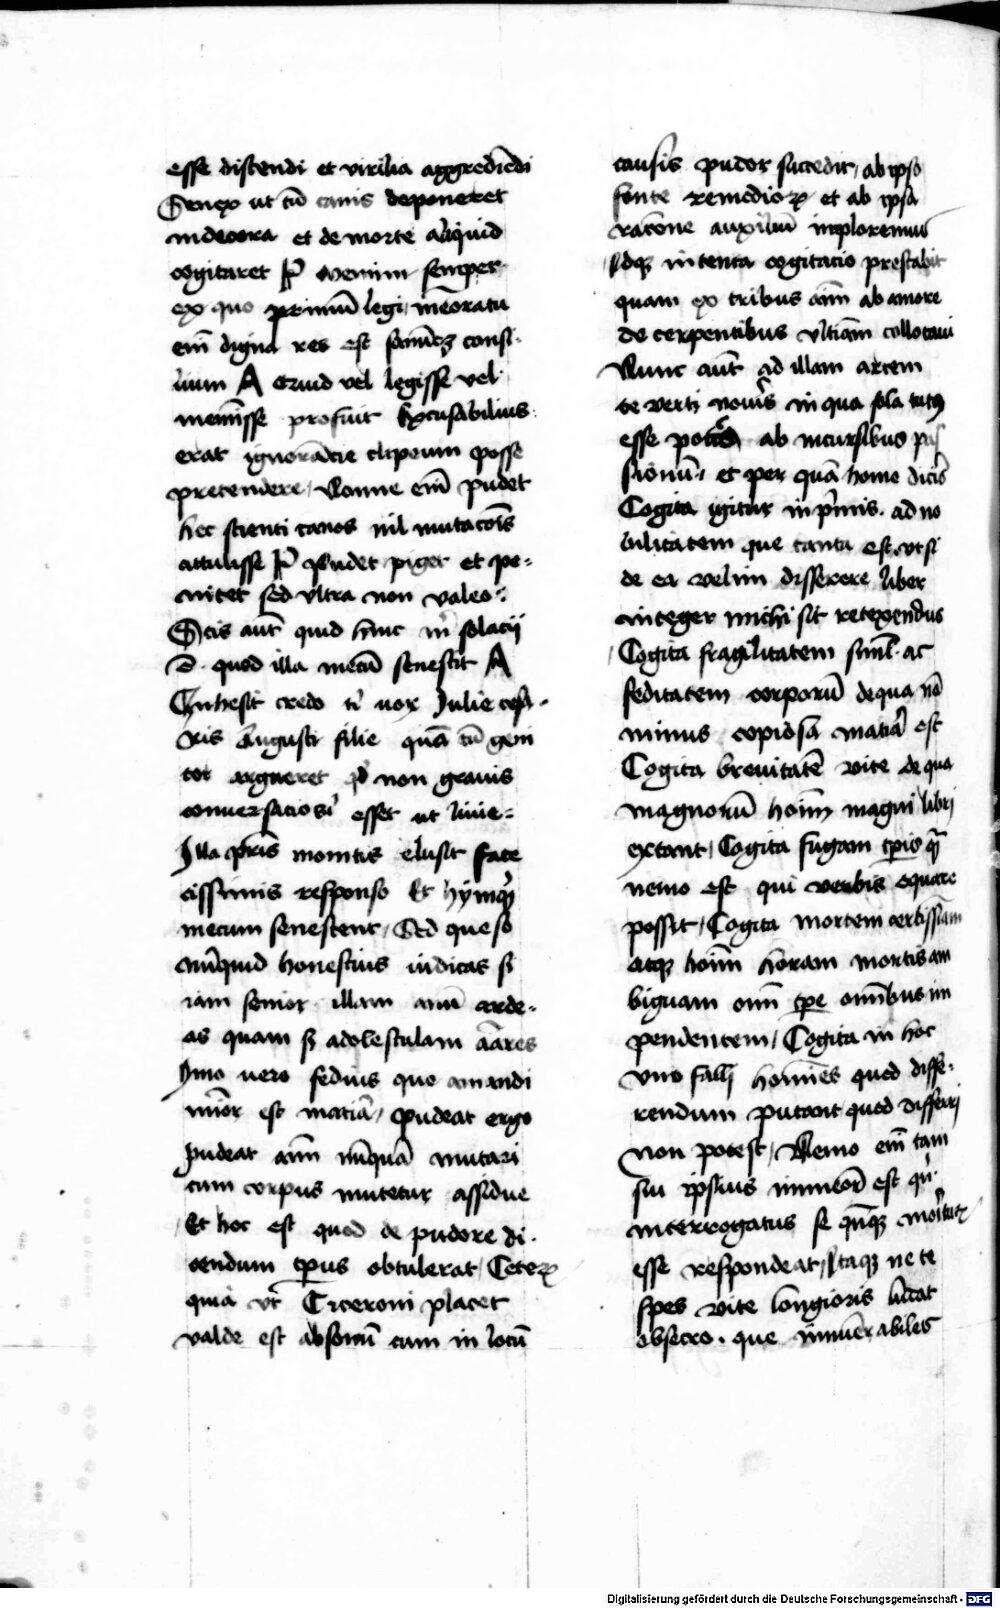 esse discendi et virilia aggrediēdi
Senex ut cū canis deponeret
indecora et de morte aliquid
cogitaret F Memini semper
ex quo primū legi inmeoratu
em̄ digna res est semūcꝫ consi-
lium A Quid vel legisse vel
meminisse profuit Excusabilius
erat ignorācie clipeum posse
pretendere, Nonne em̄ pudet
hec scienti canos nil mutacōis
attulisse F Pudet piget et pe-
nitet sed ultra non valeo
Scis aut̄ quid hinc m̄ solacij
ē. quod illa mecū senescit A
Inhesit credo t̄ vox Julie cesa-
ris Augusti filie quā cū geni
tor argueret qd̄ non gravis
conversacio si esset ut livie
Illa pr̄is monitis elusit face
cissimis responso Et hij mqͥt
mecum senescent, Sed queso
nūquid honestius iudicas si
iam senior illam anū arde-
as quam si adolesculam amares
ymo vero fedius quo amandi
minor est materia, pudeat ergo
pudeat aīm nūquā mutari
cum corpus mutetur assidue
Et hoc est quod de pudore di-
cendum tp̄us obtulerat, Ceterꝝ
quia ut Ciceroni placet
valde est absonū cum in locū
causis pudor succedit, ab ipso
fonte remediorꝝ et ab ipsa
racōne auxiliū imploremus
Idqꝫ intenta cogitacio prestabit
quam ex tribus aīm ab amore
de cerpentibus ultimam collocavi
Nunc aut̄ ad illam artem
te verti noveris in qua sola tutꝰ
esse poteris ab incursibus pas
sionū, et per quā homo diceris
Cogita igitur inprimis. ad no
bilitatem que tanta est, ut si
de ea velim disserere liber
integer michi sit retexendus
Cogita fragilitatem siml̄. ac
feditatem corporū de qua nō
minus copiosa materia est
Cogita brevitatē vite de qua
magnorū hoīm magni libri
extant, Cogita fugam tp̄is quā
nemo est qui verbis equare
possit, Cogita mortem certissiam
atqꝫ hoīm horam mortis am
biguam omī tp̄e omnibus im
pendentem, Cogita in hoc
uno falli homīes quod diffe-
rendum putant quod differri
non potest, Nemo em̄ tam
sui ipsius inmemor est qͥn
interrogatus se qn̄qꝫ moriturꝝ
esse respondeat, Itaqꝫ ne te
spes vite longioris ludat
obsecro. que innumerabiles
Digitalisierung gefördert durch die Deutsche Forschungsgemeinschaft - DFG